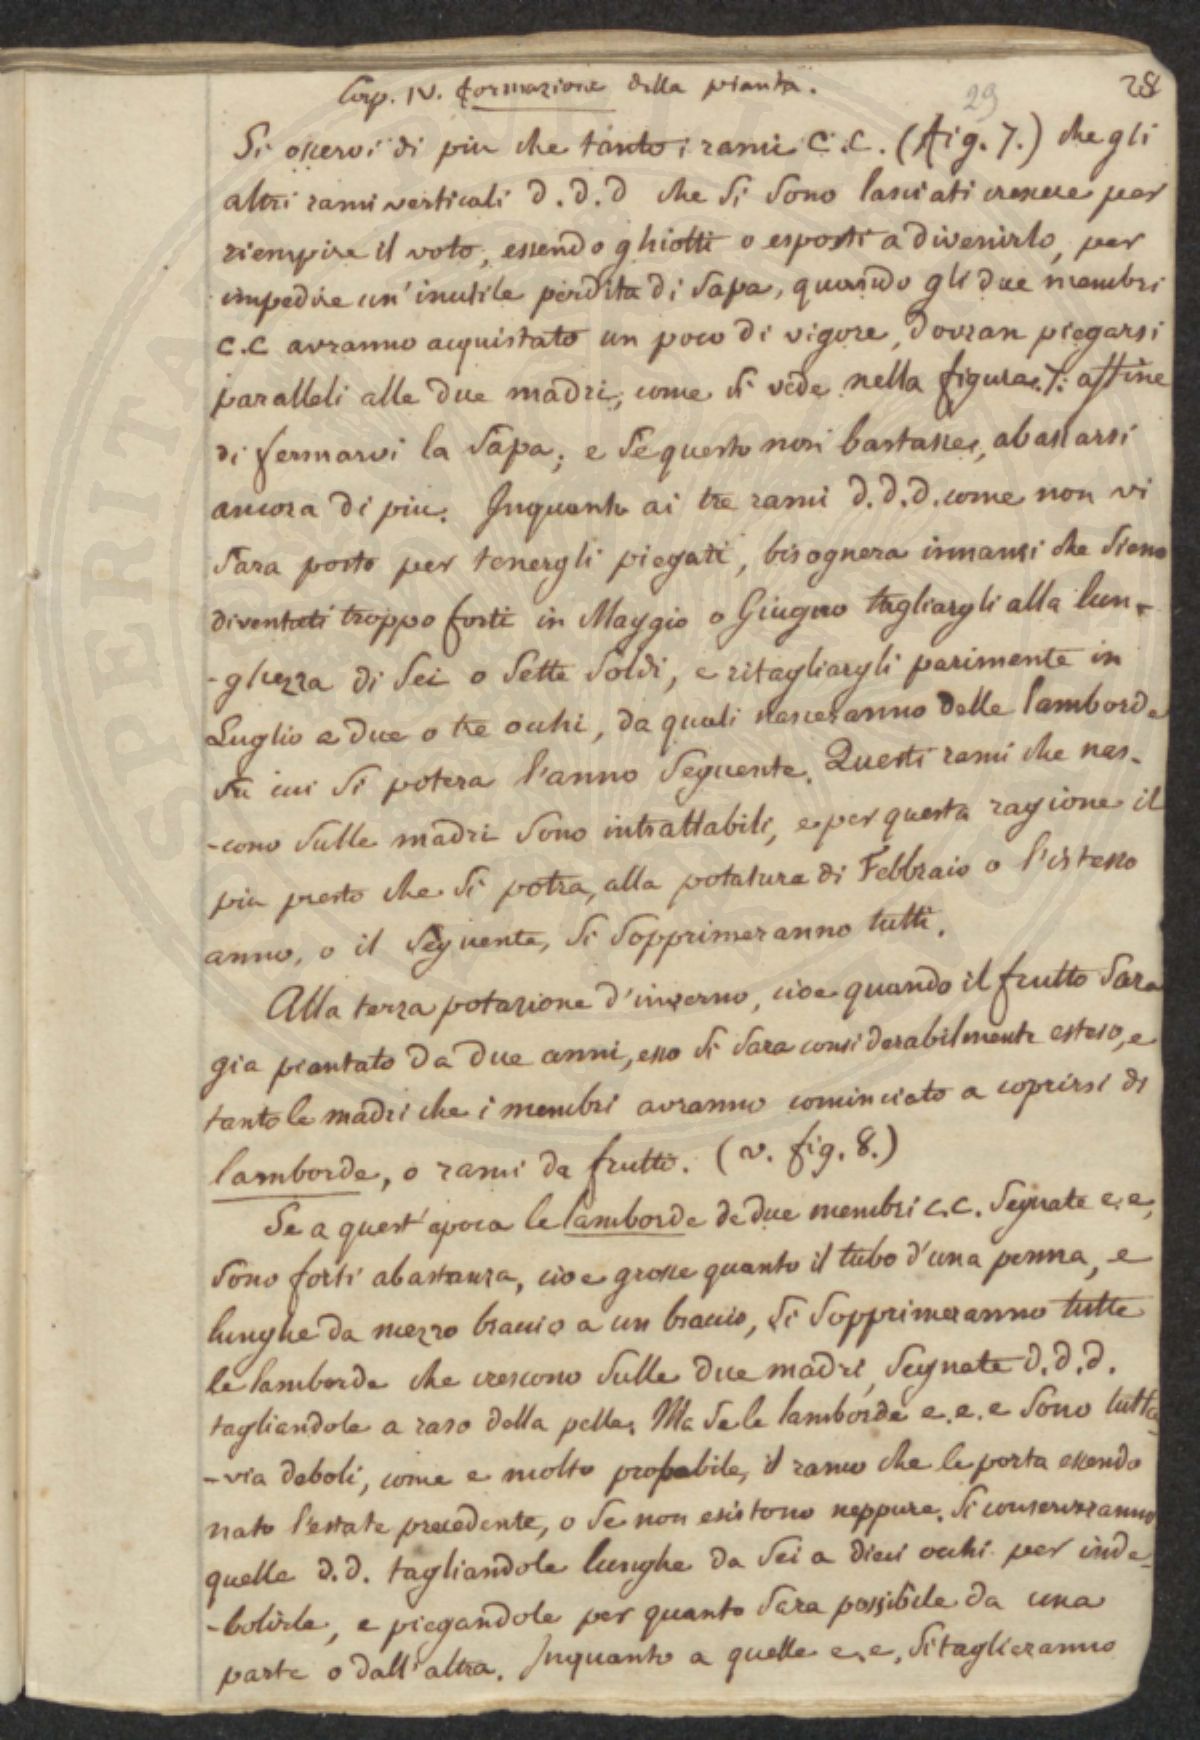 Cap. IV. formazione della pianta.
29
28
Si osservi di piu che tanto i rami C.C. (fig. 7.) che gli
altri rami verticali d.d.d che si sono lasciati crescere per
riempire il voto, essendo ghiotti o esposti a divenirlo, per
impedire un' inutile perdita di sapa, quando gli due membri
C.C avranno acquistato un poco di vigore, dovran piegarsi
paralleli alle due madri, come si vede nella figura 7. affine
di fermarvi la sapa; e se questo non bastasse, abassarsi
ancora di piu. Inquanto ai tre rami d.d.d. come non vi
sara posto per tenergli piegati, bisognera innanzi che sieno
diventati troppo forti in Maggio o Giugno tagliargli alla lun-
-ghezza di sei o sette soldi, e ritagliargli parimente in
Luglio a due o tre occhi, da quali nasceranno delle lamborde
su cui si potera l'anno seguente. Questi rami che nas-
-cono sulle madri sono intrattabili, e per questa ragione il
piu presto che si potra, alla potatura di Febbraio o l'istesso
anno, o il seguente, si sopprimeranno tutti.
Alla terza potazione d'inverno, cioe quando il frutto sara
gia piantato da due anni, esso si sara considerabilmente esteso, e
tanto le madri che i membri avranno cominciato a coprirsi di
lamborde, o rami da frutti. (v. fig. 8.)
Se a quest' epoca le lamborde de due membri c.c. segnate e.e,
sono forti abastanza, cioe grosse quanto il tubo d'una penna, e
lunghe da mezzo braccio a un braccio, si sopprimeranno tutte
le lamborde che crescono sulle due madri, segnate d.d.d.
tagliandole a raso della pelle. Ma se le lamborde e.e.e sono tutta-
-via deboli, come e molto probabile, il ramo che le porta essendo
nato l'estate precedente, o se non esistono neppure, si conserveranno
quelle d.d. tagliandole lunghe da sei a dieci occhi per inde-
-bolirle, e piegandole per quanto sara possibile da una
parte o dall'altra. Inquanto a quelle e.e, si taglieranno